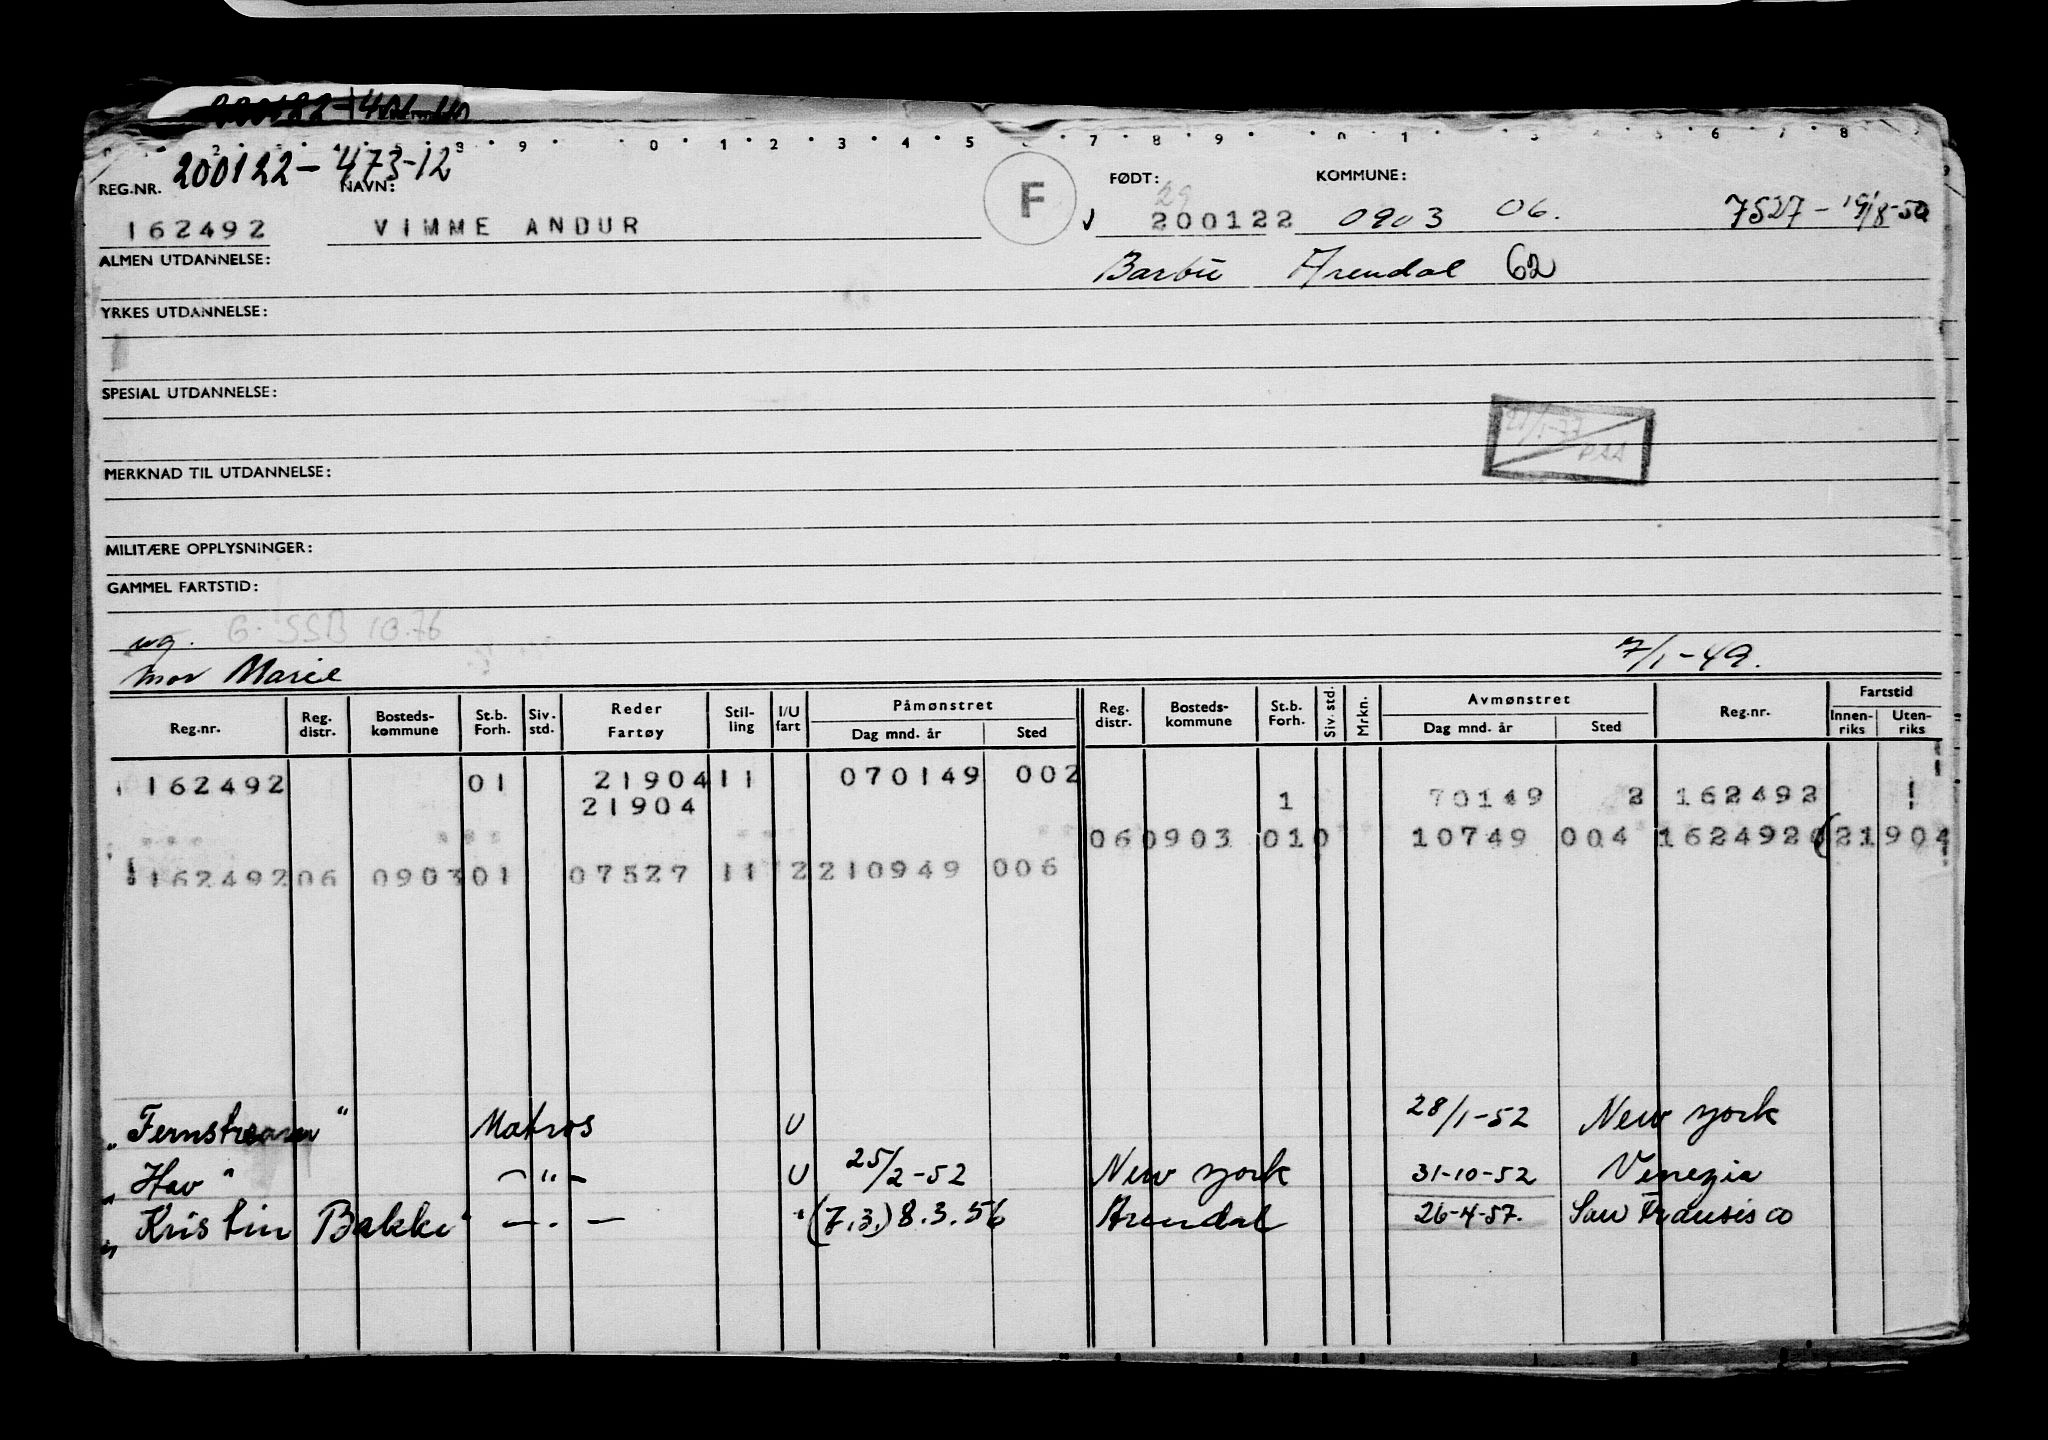 200122-473-12
REG.NR. NAVN: F FØDT: KOMMUNE:
29
162492 VIMME ANDUR 200122 0903 06. 7527-19/8-50
ALMEN UTDANNELSE: Barbu Arendal 62
YRKES UTDANNELSE:
SPESIAL UTDANNELSE:
21/1-77
PAA
MERKNAD TIL UTDANNELSE:
MILITÆRE OPPLYSNINGER:
GAMMEL FARTSTID:
ug. G. SSB 10.76
mor Marie 7/1-49.
Reg.nr. Reg. distr. Bosteds-kommune St.b. Forh. Siv. std. Reder Fartøy Stil-ling I/U fart Påmønstret Dag mnd. år Sted Reg. distr. Bosteds-kommune St.b. Forh. Siv. std. Mrkn. Avmønstret Dag mnd. år Sted Reg.nr. Fartstid Innen-riks Uten-riks
162492 01 21904 11 070149 002
21904 1 70149 2 162492
06 0903 010 10749 004 162492 (21904
162492 06 0903 01 07527 11 2 210949 006
"Fernstream" Matros U 28/1-52 New York
"Hav" - " - U 25/2-52 New York 31-10-52 Venezia
"Kristin Bakke" - . - " (7.3.) 8.3.56 Arendal 26-4-57. San Fransisco